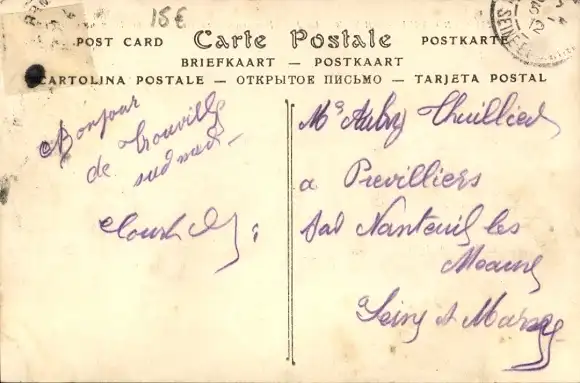 15€
POST CARD Carte Postale POSTKARTE
BRIEFKAART — POSTKAART
CARTOLINA POSTALE — ОТКРЫТОЕ ПИСЬМО — TARJETA POSTAL
Bonjour
de Trouville
sud mer
Mr Aubry Thuillier
a Previlliers
par Nanteuil les
Meaux
Seine et Marne